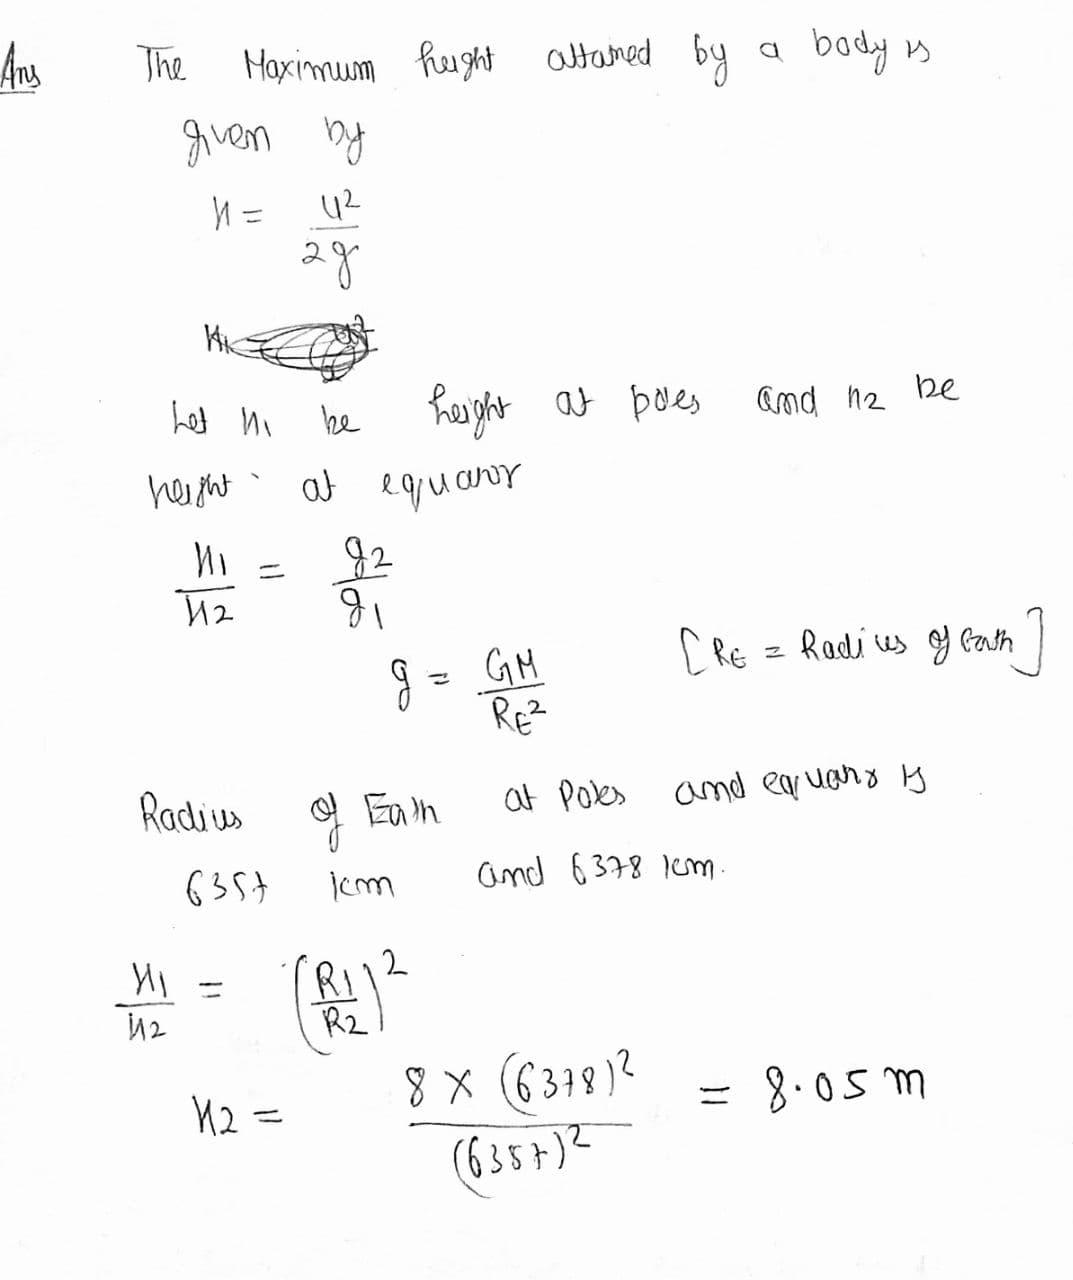 Ans The Maximum height attained by a body is
given by
H = u²/2g
Let H1 be height at poles and H2 be
height at equator
H1/H2 = g2/g1
g = GM/RE² [RE = Radius of Earth]
Radius of Earth at Poles and equator is
6357 km and 6378 km.
H1/H2 = (R1/R2)²
H2 = 8 × (6378)²/(6357)² = 8.05 m